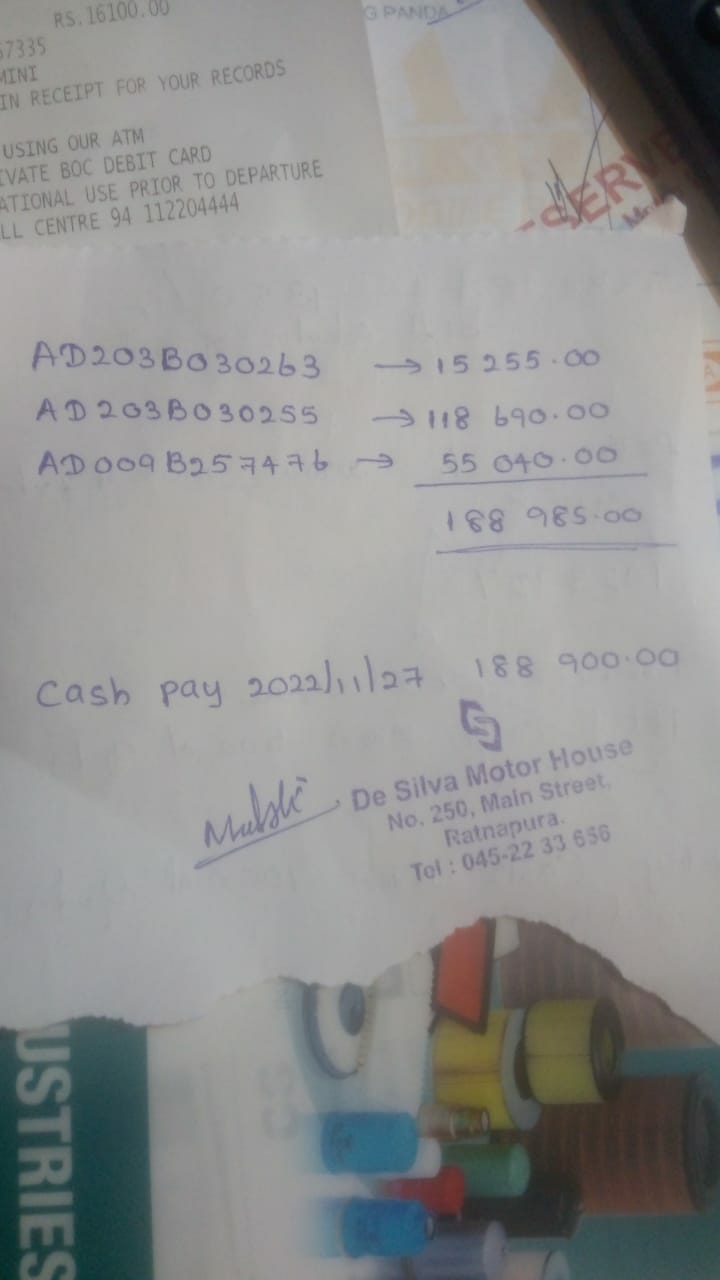 RS.16100.00
57335
MINI
IN RECEIPT FOR YOUR RECORDS
USING OUR ATM
IVATE BOC DEBIT CARD
ATIONAL USE PRIOR TO DEPARTURE
LL CENTRE 94 112204444
G PANDA
SERVE
AD203B030263 → 15 255.00
AD203B030255 → 118 690.00
AD009B257476 → 55 040.00
188 985.00
Cash pay 2022/11/27 188 900.00
De Silva Motor House
No. 250, Main Street,
Ratnapura.
Tel : 045-22 33 656
USTRIES